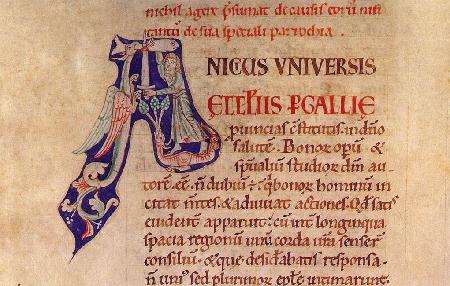 nichil agere p̄sumat de causis eorū nisi
tantū de sua speciali parrochia.
ANICIUS UNIVERSIS
EPIS P GALLIĘ
ꝓuincias c̄stitutis in dn̄o
salutē. Bonor opū &
spūaliū studior dn̄m au
torē. eē. n̄ dubiū ÷ q bonor hominū in
citat m̄tes. & adiuuat actiones. Qd satis
euident apparuit. cū int longinqua
spacia regionū unū corda ur̄m senser̄
consiliū. & que desid̄abatis responsa.
n̄ uni sed plurimor ep̄le intimarunt.